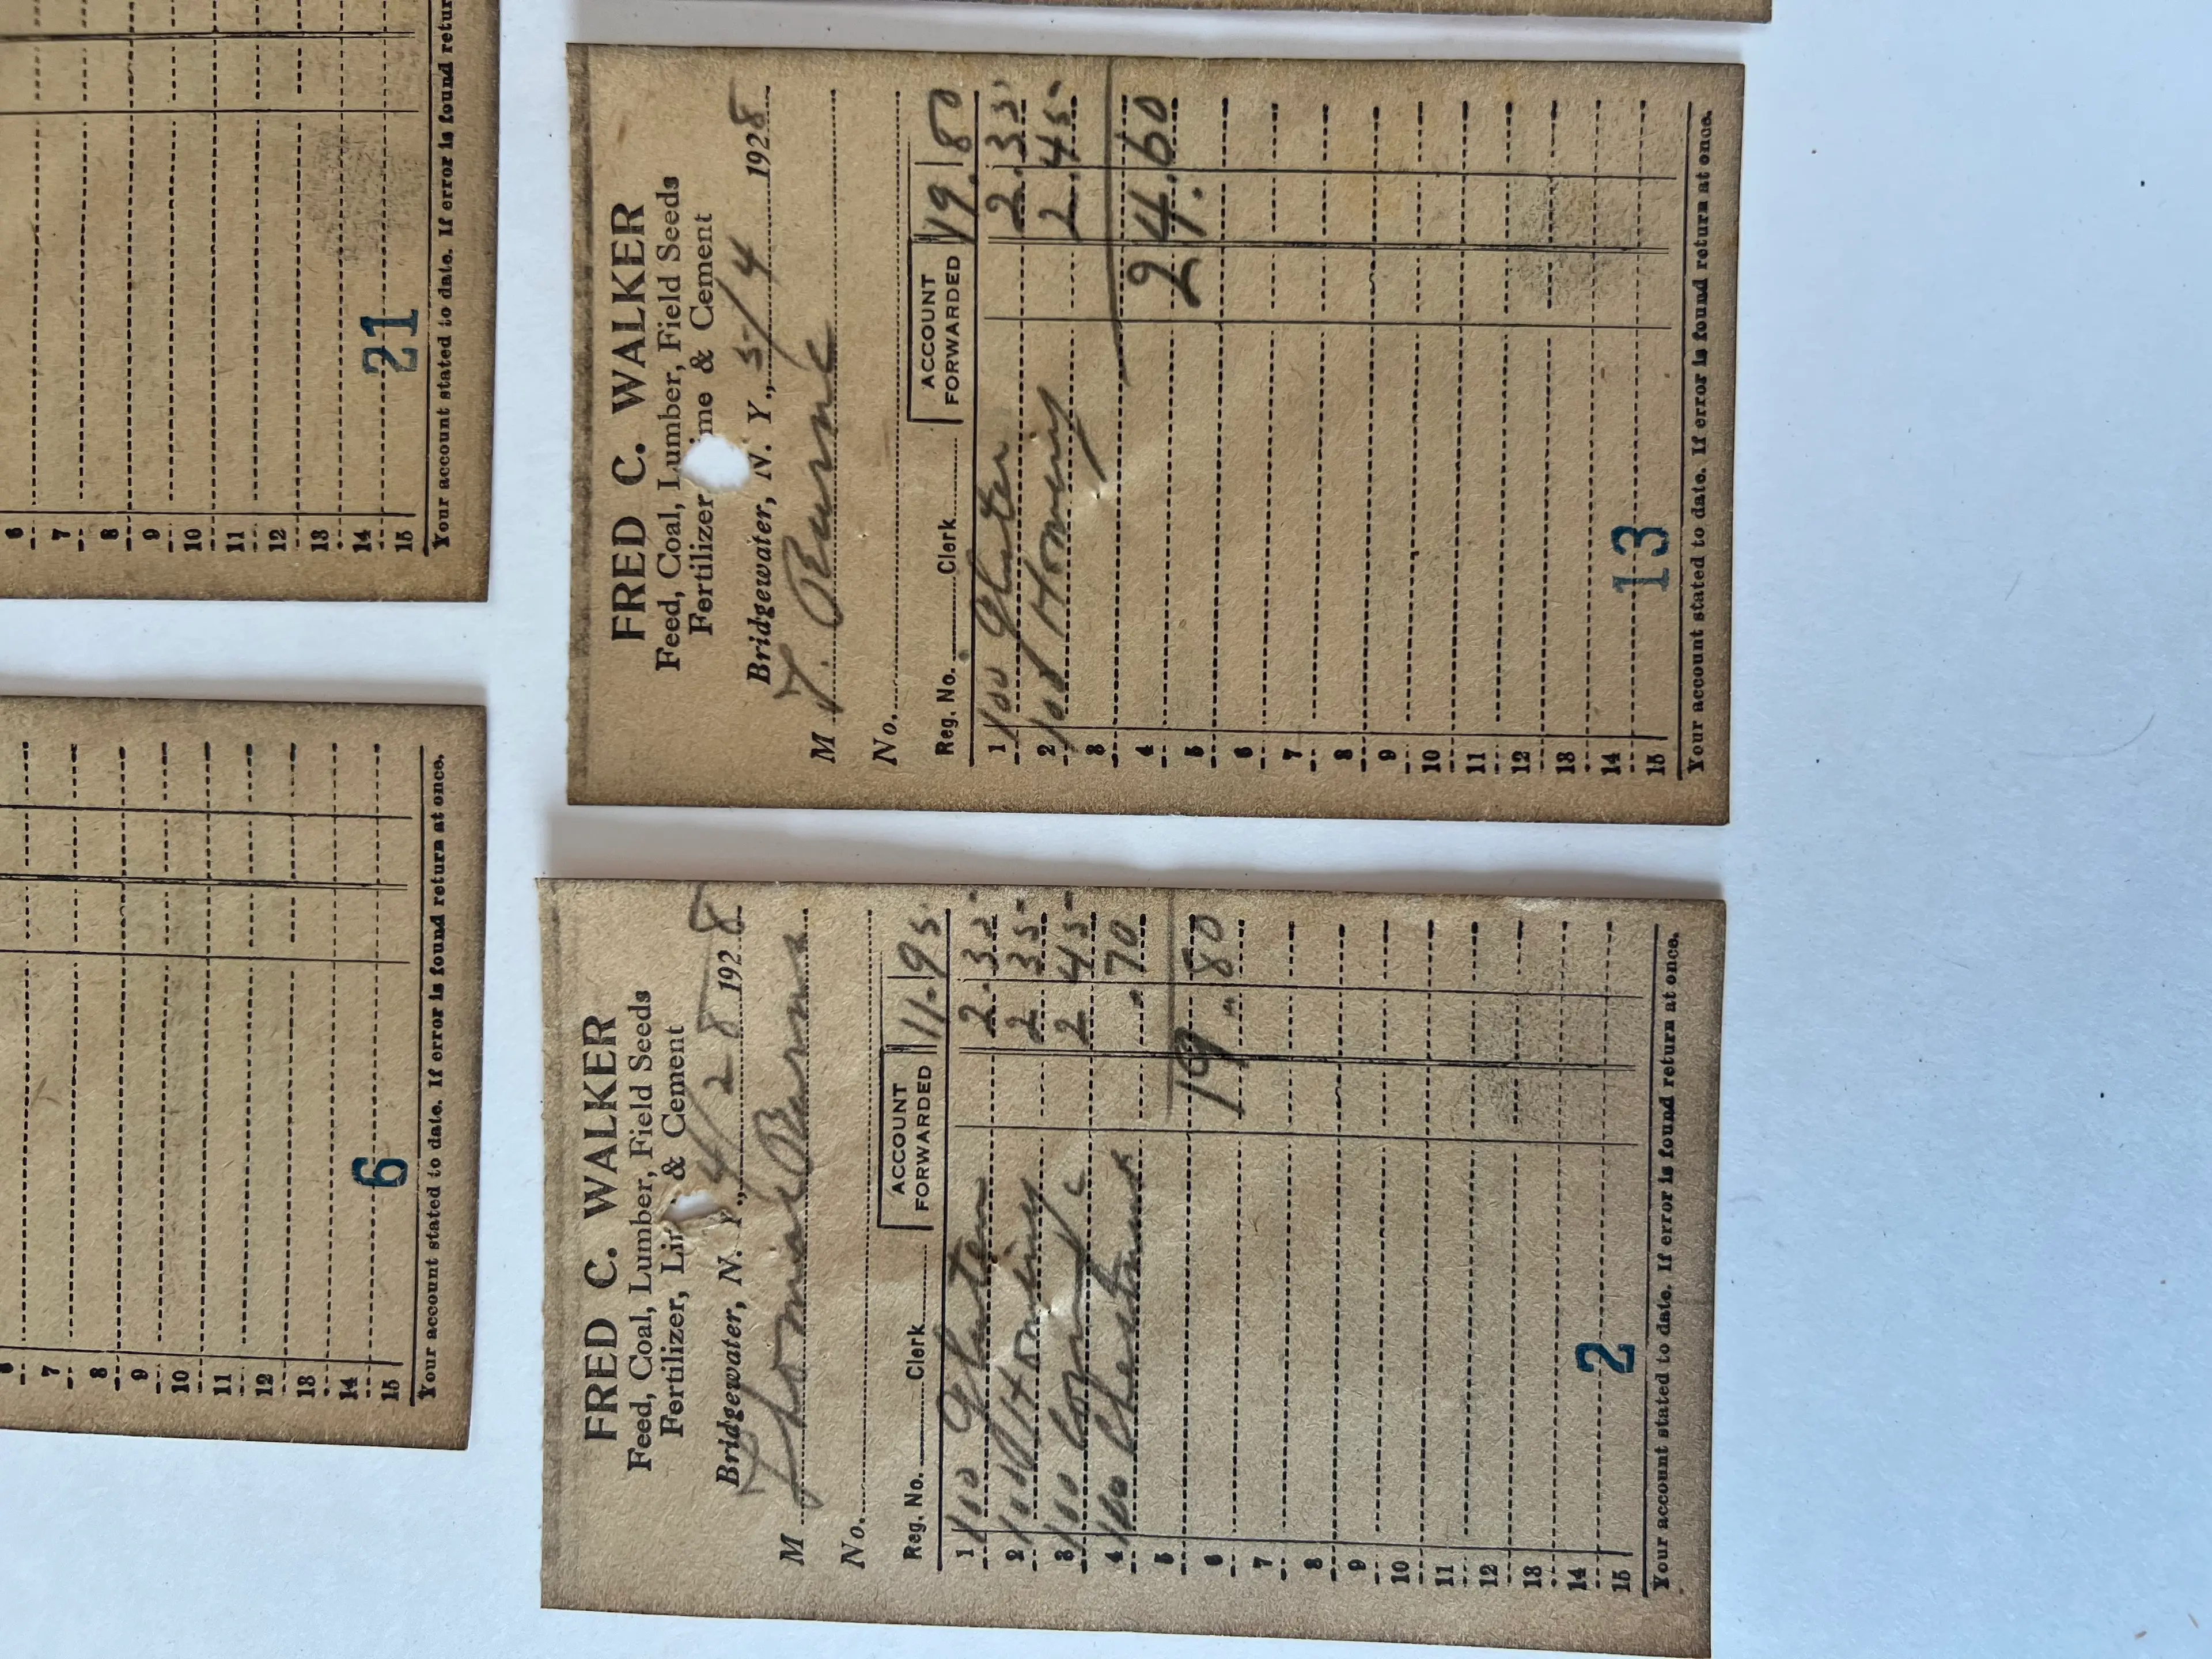 6
7
8
9
10
11
12
13
14
15
6
Your account stated to date. If error is found return at once.
6
7
8
9
10
11
12
13
14
15
21
Your account stated to date. If error is found retur
FRED C. WALKER
Feed, Coal, Lumber, Field Seeds
Fertilizer, Li & Cement
Bridgewater, N. Y., 4/28 1928
M Thomas Burns
No.
Reg. No. Clerk ACCOUNT FORWARDED 11.95
1 100 Gluten 2.35
2 100 Hominy 2 35
3 100 2 45
4 100 .70
5 19.80
6
7
8
9
10
11
12
13
14
15
2
Your account stated to date. If error is found return at once.
FRED C. WALKER
Feed, Coal, Lumber, Field Seeds
Fertilizer ime & Cement
Bridgewater, N. Y., 5/4 1928
M T. Burns
No.
Reg. No. Clerk ACCOUNT FORWARDED 19.80
1 100 Gluten 2.35
2 100 Hominy 2.45
3
4 24.60
5
6
7
8
9
10
11
12
13
14
15
13
Your account stated to date. If error is found return at once.